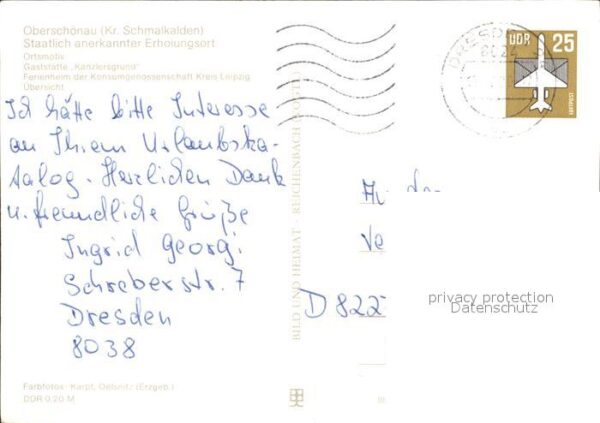 Oberschönau (Kr. Schmalkalden)
Staatlich anerkannter Erholungsort
Ortsmotiv
Gaststätte „Kanzlersgrund"
Ferienheim der Konsumgenossenschaft Kreis Leipzig
Übersicht
Ich hätte bitte Interesse
an Ihrem Urlaubska-
talog. Herzlichen Dank
u. freundliche Grüße
Ingrid Georgi
Schreberstr. 7
Dresden
8038
Farbfotos: Karpf, Oelsnitz (Erzgeb.)
DDR 0,20 M
BILD UND HEIMAT · REICHENBACH
DRESDEN
8024
DDR 25
LUFTPOST
An
Ve
D 822
privacy protection
Datenschutz